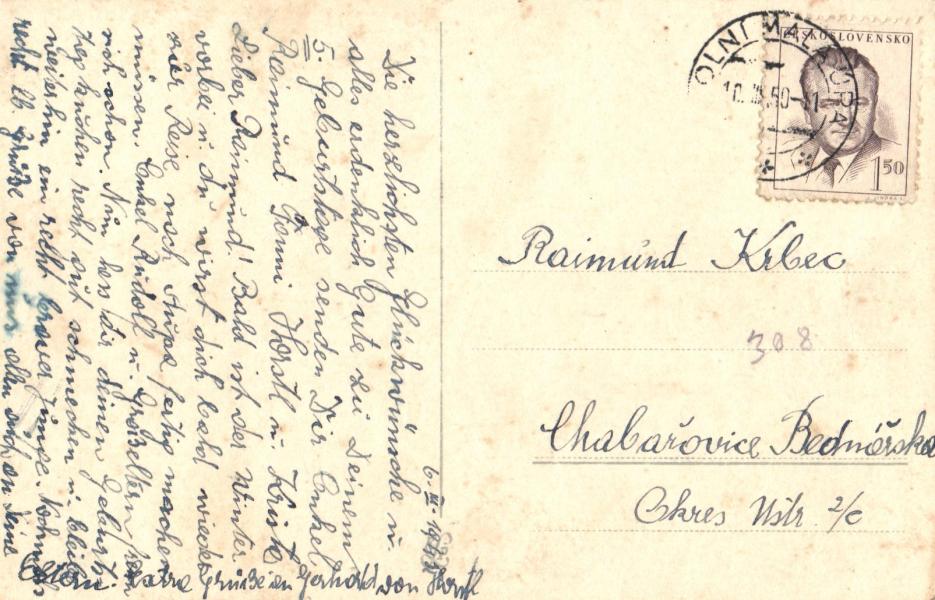 Die herzlichsten Glückwünsche u.
alles erdenklich Gute zu Deinem
5. Geburtstage senden Dir Onkel
Reimund Tonni Horstl u. Krista
Lieber Raimund! Bald ist der Winter
vorbei u. du wirst dich bald wieder
zur Reise nach Aupa fertig machen
müssen. Onkel Rudolf u. Großeltern
sich schon. Nun las dir deinen Geburts
tagkuchen recht gut schmecken u. bleib
weiterhin ein recht braver Junge. Nochmals
recht lb. Grüße von uns allen auch an deine
Eltern. Extra Grüße an Gerhard von Horstl
6. III. 1950
OLNÍ MALÁ ÚPA
10. III. 50-11
ČESKOSLOVENSKO
1 50
Raimund Krbec
308
Chabařovice Bednářska
Okres Ústí n/L